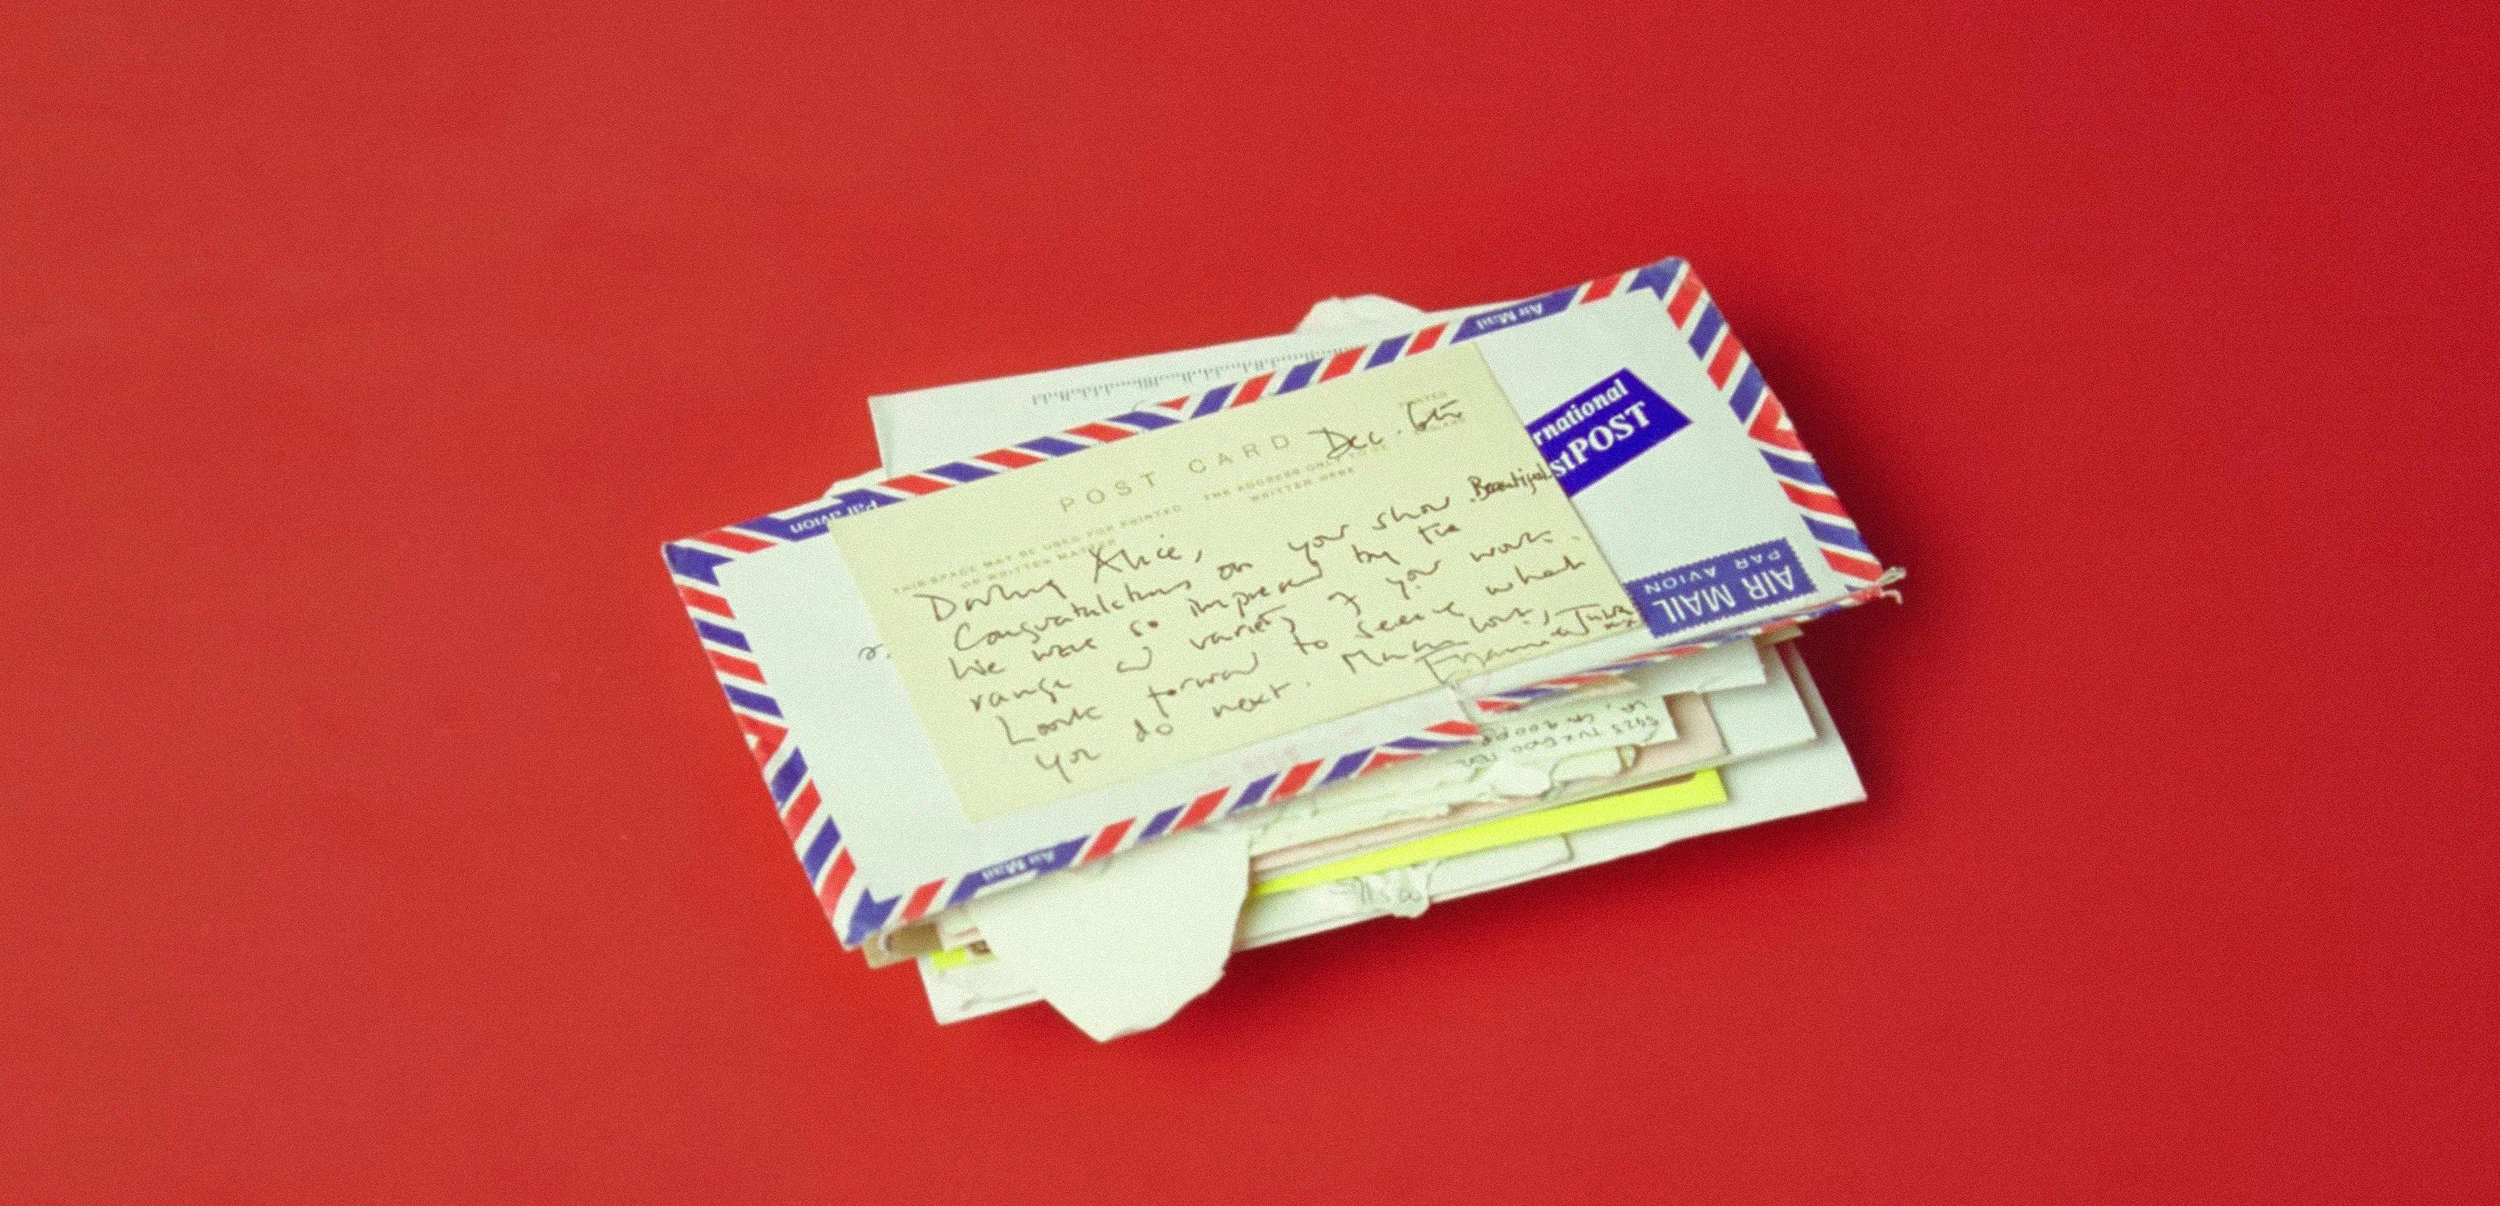 Air Mail
Par avion
POST CARD
Dec. 6th
PRINTED
ENGLAND
THIS SPACE MAY BE USED FOR PRINTED
OR WRITTEN MATTER
THE ADDRESS ONLY TO BE
WRITTEN HERE
Darling Alice,
Congratulations on your show. Beautiful
We were so impressed by the
range & variety of your work.
Look forward to seeing what
you do next.
rnational
stPOST
AIR MAIL
PAR AVION
Air Mail